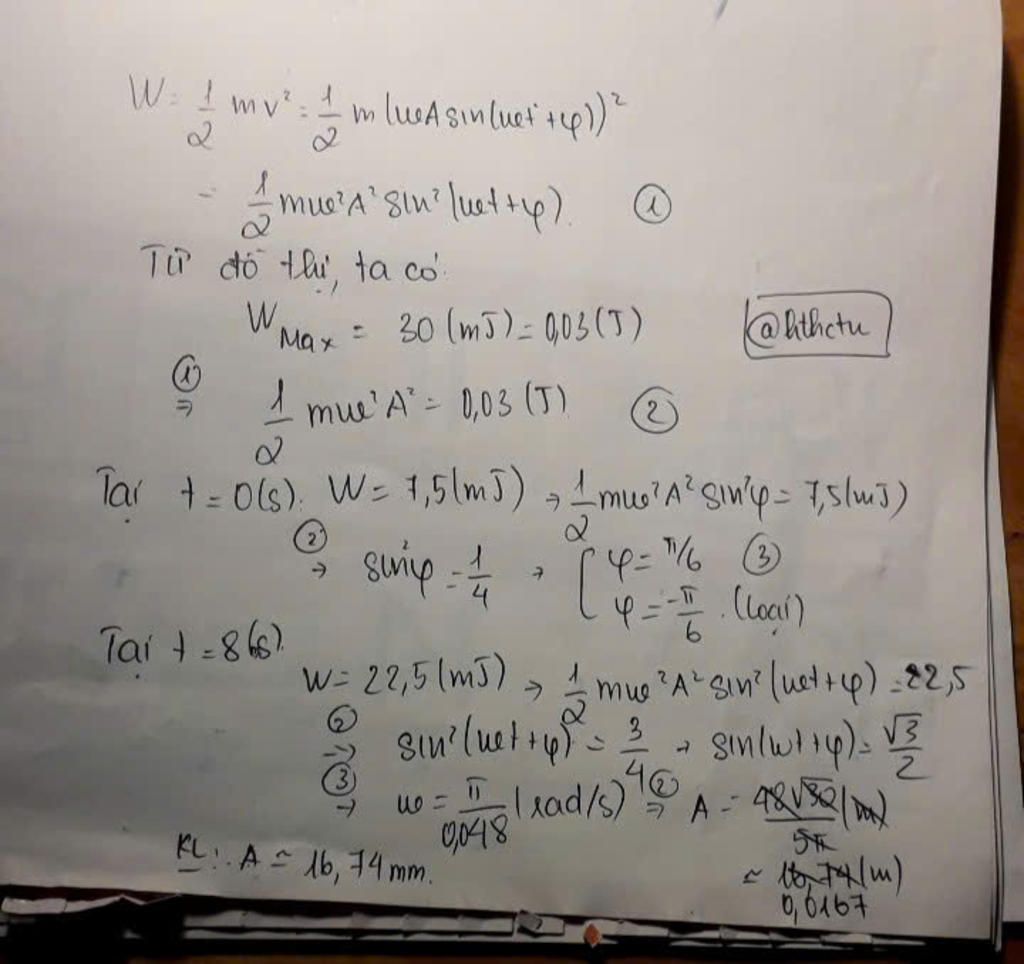 W = 1/2 mv² = 1/2 m(ωA sin(ωt + φ))²
= 1/2 mω²A² sin²(ωt + φ). ①
Từ đồ thị, ta có:
W Max = 30 (mJ) = 0,03 (J)
@hthctu
① ⇒ 1/2 mω²A² = 0,03 (J) ②
Tại t = 0(s). W = 7,5 (mJ) → 1/2 mω²A² sin²φ = 7,5 (mJ)
② → sin²φ = 1/4 → [ φ = π/6 ③
φ = -π/6 . (loại)
Tại t = 8(s).
W = 22,5 (mJ) → 1/2 mω²A² sin²(ωt + φ) = 22,5
② ⇒ sin²(ωt + φ) = 3/4 → sin(ωt + φ) = √3/2
③ → ω = π/0,048 (rad/s) ② ⇒ A = 48√30/5π (m)
KL: A ≈ 16,74 mm.
≈ 16,74 (m)
0,0167